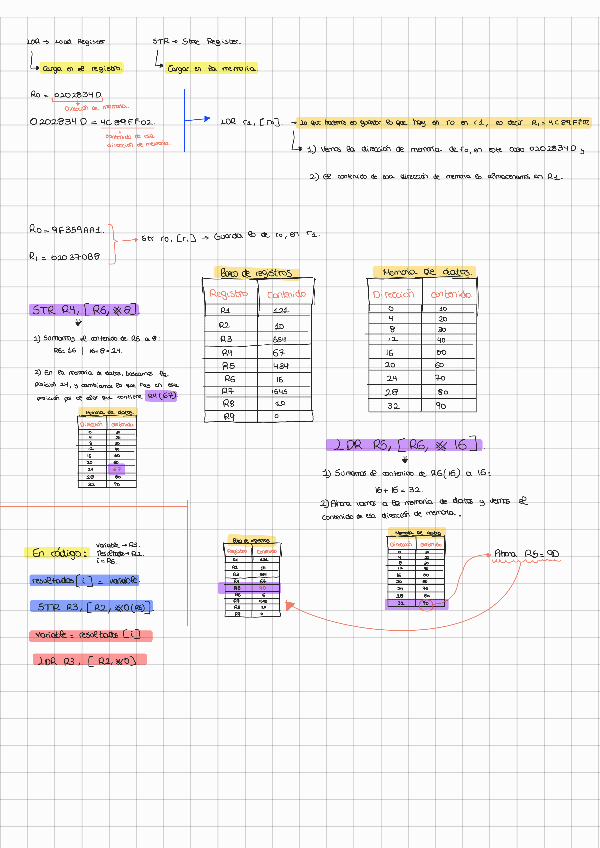 LDR → Load Register
STR → Store Register.
Carga en el registro.
Cargar en la memoria.
R0 = 0202834D
Dirección de memoria.
0202834D = 4C89FF02.
contenido de esa
dirección de memoria.
LDR r1, [r0]. → lo que hacemos es guardar lo que hay en r0 en r1, es decir R1 =
1) Vemos la dirección de memoria de r0, en este caso 0202834D y
2) El contenido de esa dirección de memoria lo almacenamos en R1.
R0 = 9F359AA1.
R1 = 02037088
Str r0, [r1] → Guarda lo de r0, en r1.
STR R4, [R6, #8]
1) Sumamos el contenido de R6 a 8:
R6 = 16 | 16 + 8 = 24.
2) En la memoria de datos, buscamos la
posición 24, y cambiamos lo que hay en esa
posición por el valor que contiene R4 (67)
Memoria de datos
Dirección contenido
0 10
4 20
8 30
12 40
16 50
20 60
24 67
28 80
32 90
Banco de registros
Registro Contenido
R1 121
R2 10
R3 554
R4 67
R5 434
R6 16
R7 1645
R8 10
R9 0
Memoria de datos
Dirección contenido
0 10
4 20
8 30
12 40
16 50
20 60
24 70
28 80
32 90
LDR R5, [R6, #16].
1) Sumamos el contenido de R6 (16) a 16:
16 + 16 = 32.
2) Ahora vamos a la memoria de datos y vemos el
contenido de esa dirección de memoria.
En código:
variable → R3.
resultado → R2.
i = R6.
resultados [i] = variable.
STR R3, [R2, #0(R6)]
variable = resultados [i]
LDR R3, [R2, #0]
Banco de registros
Registro Contenido
R1 121
R2 10
R3 554
R4 67
R5 90
R6
R7
R8 10
R9 0
Memoria de datos
Dirección contenido
0 10
4 20
8 30
12 40
16 50
20 60
24 70
28 80
32 90
Ahora R5 = 90